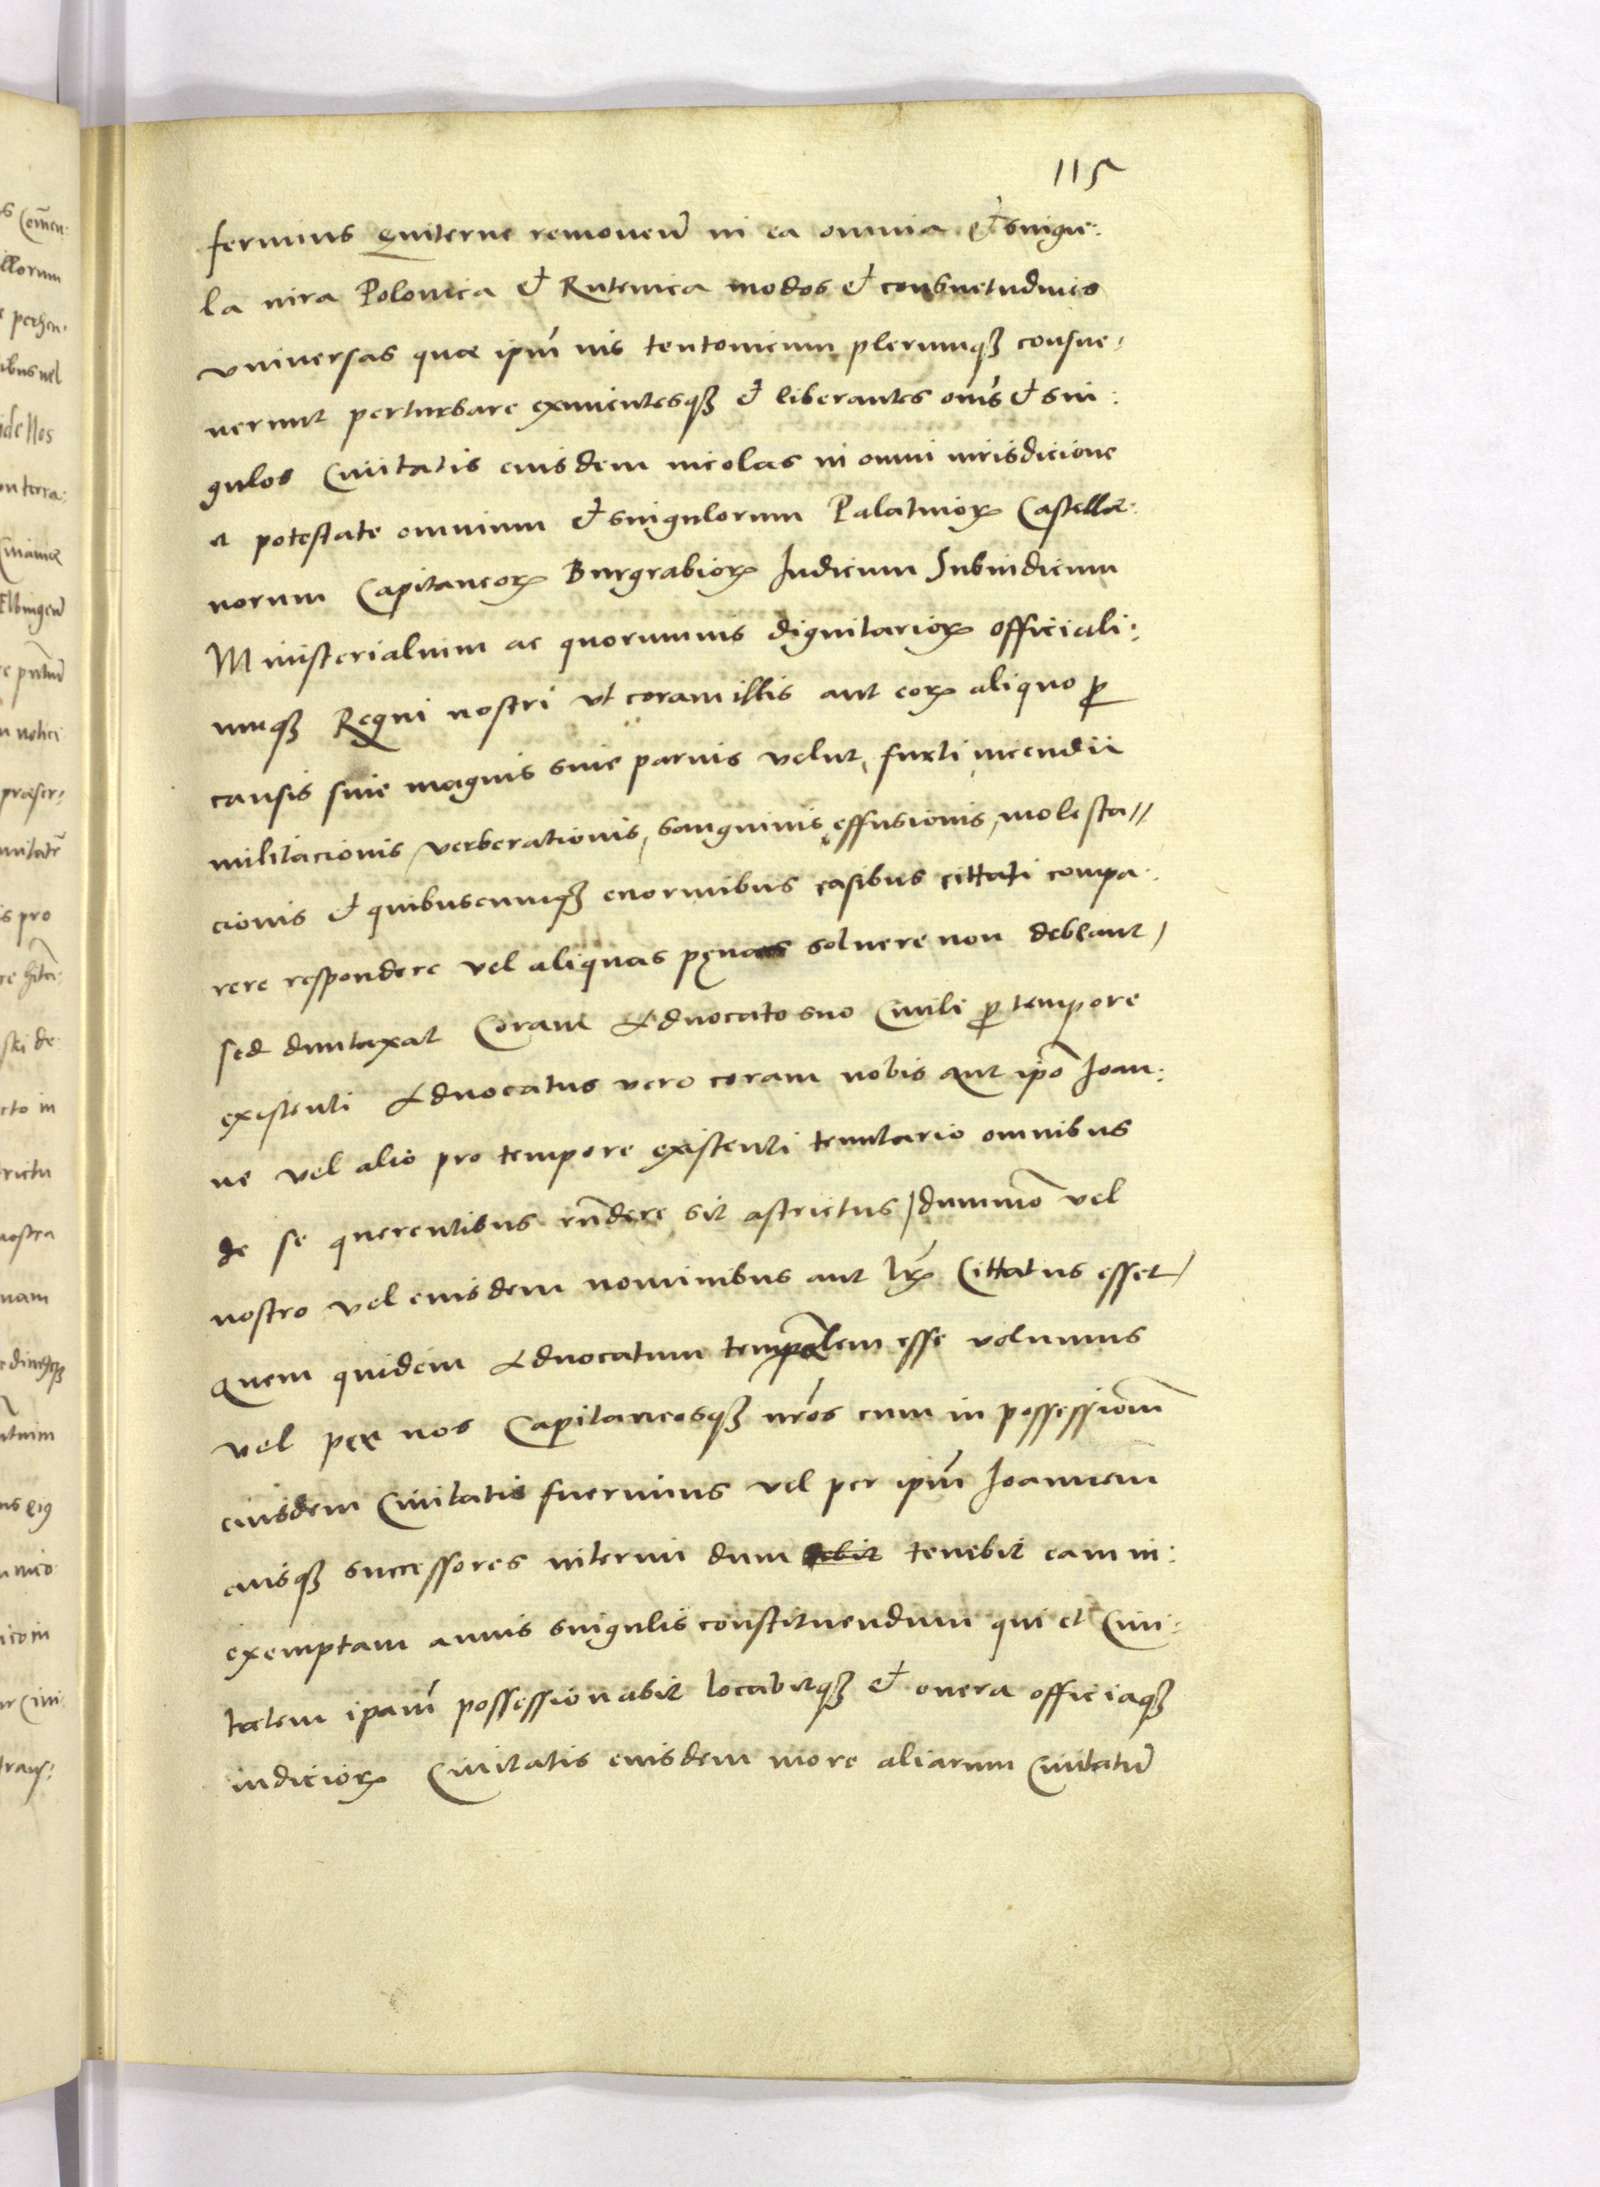 115
fermius ęuiterne remouen̄ in ea omnia et singu:
la iura Polonica et Rutenica modos et consuetudines
vniuersas quæ ipm̄ ius teutonicum plerumqȝ consue:
uerunt perturbare eximentesqȝ et liberantes om̄s et sin:
gulos Ciuitatis eiusdem incolas in omni iurisdicione
et potestate omnium et singulorum Palatinorꝝ Castella:
norum Capitaneorꝝ Burgrabiorꝝ Iudicum Subiudicum
Ministerialium ac quorumuis dignitariorꝝ officiali:
umqȝ Regni nostri vt coram illis aut eorꝝ aliquo ꝓ
causis siue magnis siue paruis velut, furti, incendii
militacionis, verberationis, sanguinis, effusionis, molesta//
cionis et quibuscumqȝ enormibus casibus cittati compa:
rere respondere vel aliquas pęnas soluere non debeant/
sed duntaxat Coram Aduocato suo Ciuili ꝓ tempore
existenti Aduocatus vero coram nobis aut ipō Ioan:
ne vel alio pro tempore existenti tenutario omnibus
de se querentibus rn̄dere sit astrictus/ dummō vel
nostro vel eiusdem nominibus aut lrꝝ Cittatus esset/
Quem quidem Aduocatum temp̄alem esse volumus
vel per nos Capitaneosqȝ nr̄os cum in possessionē
eiusdem Ciuitatis fuerimus vel per ipm̄ Ioannem
eiusqȝ successores interim dum ebit tenebit eam in:
exemptam annis singulis constituendum qui et Ciui:
tatem ipam̄ possessionabit locabitqȝ et onera officiaqȝ
iudiciorꝝ Ciuitatis eiusdem more aliarum Ciuitatū
Com̄en:
illorum
perhen:
ibus uel
ide Nos
on terra:
Elbingen̄
præscr:
is pro
ski de:
cto in
nostra
nam
ico in
trans: